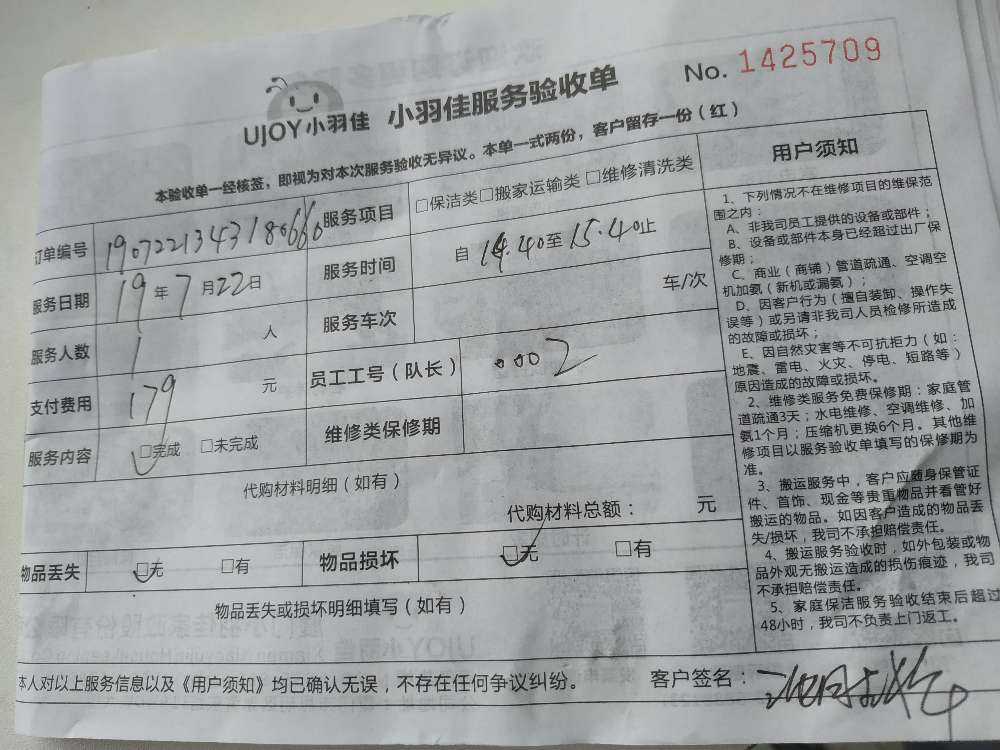 No. 1425709
UJOY小羽佳 小羽佳服务验收单
本验收单一经核签，即视为对本次服务验收无异议。本单一式两份，客户留存一份（红）
订单编号 1907221343180666 服务项目 □保洁类□搬家运输类 □维修清洗类
服务日期 19年7月22日 服务时间 自14.40至15.40止
服务人数 1 人 服务车次 车/次
支付费用 179 元 员工工号（队长） 0002
服务内容 □完成 □未完成 维修类保修期
代购材料明细（如有）
代购材料总额： 元
物品丢失 □无 □有 物品损坏 □无 □有
物品丢失或损坏明细填写（如有）
本人对以上服务信息以及《用户须知》均已确认无误，不存在任何争议纠纷。 客户签名：
用户须知
1、下列情况不在维修项目的维保范
围之内：
A、非我司员工提供的设备或部件；
B、设备或部件本身已经超过出厂保
修期；
C、商业（商铺）管道疏通、空调空
机加氨（新机或漏氨）；
D、因客户行为（擅自装卸、操作失
误等）或另请非我司人员检修所造成
的故障或损坏；
E、因自然灾害等不可抗拒力（如：
地震、雷电、火灾、停电、短路等）
原因造成的故障或损坏。
2、维修类服务免费保修期：家庭管
道疏通3天；水电维修、空调维修、加
氨1个月；压缩机更换6个月。其他维
修项目以服务验收单填写的保修期为
准。
3、搬运服务中，客户应随身保管证
件、首饰、现金等贵重物品并看管好
搬运的物品。如因客户造成的物品丢
失/损坏，我司不承担赔偿责任。
4、搬运服务验收时，如外包装或物
品外观无搬运造成的损伤痕迹，我司
不承担赔偿责任。
5、家庭保洁服务验收结束后超过
48小时，我司不负责上门返工。